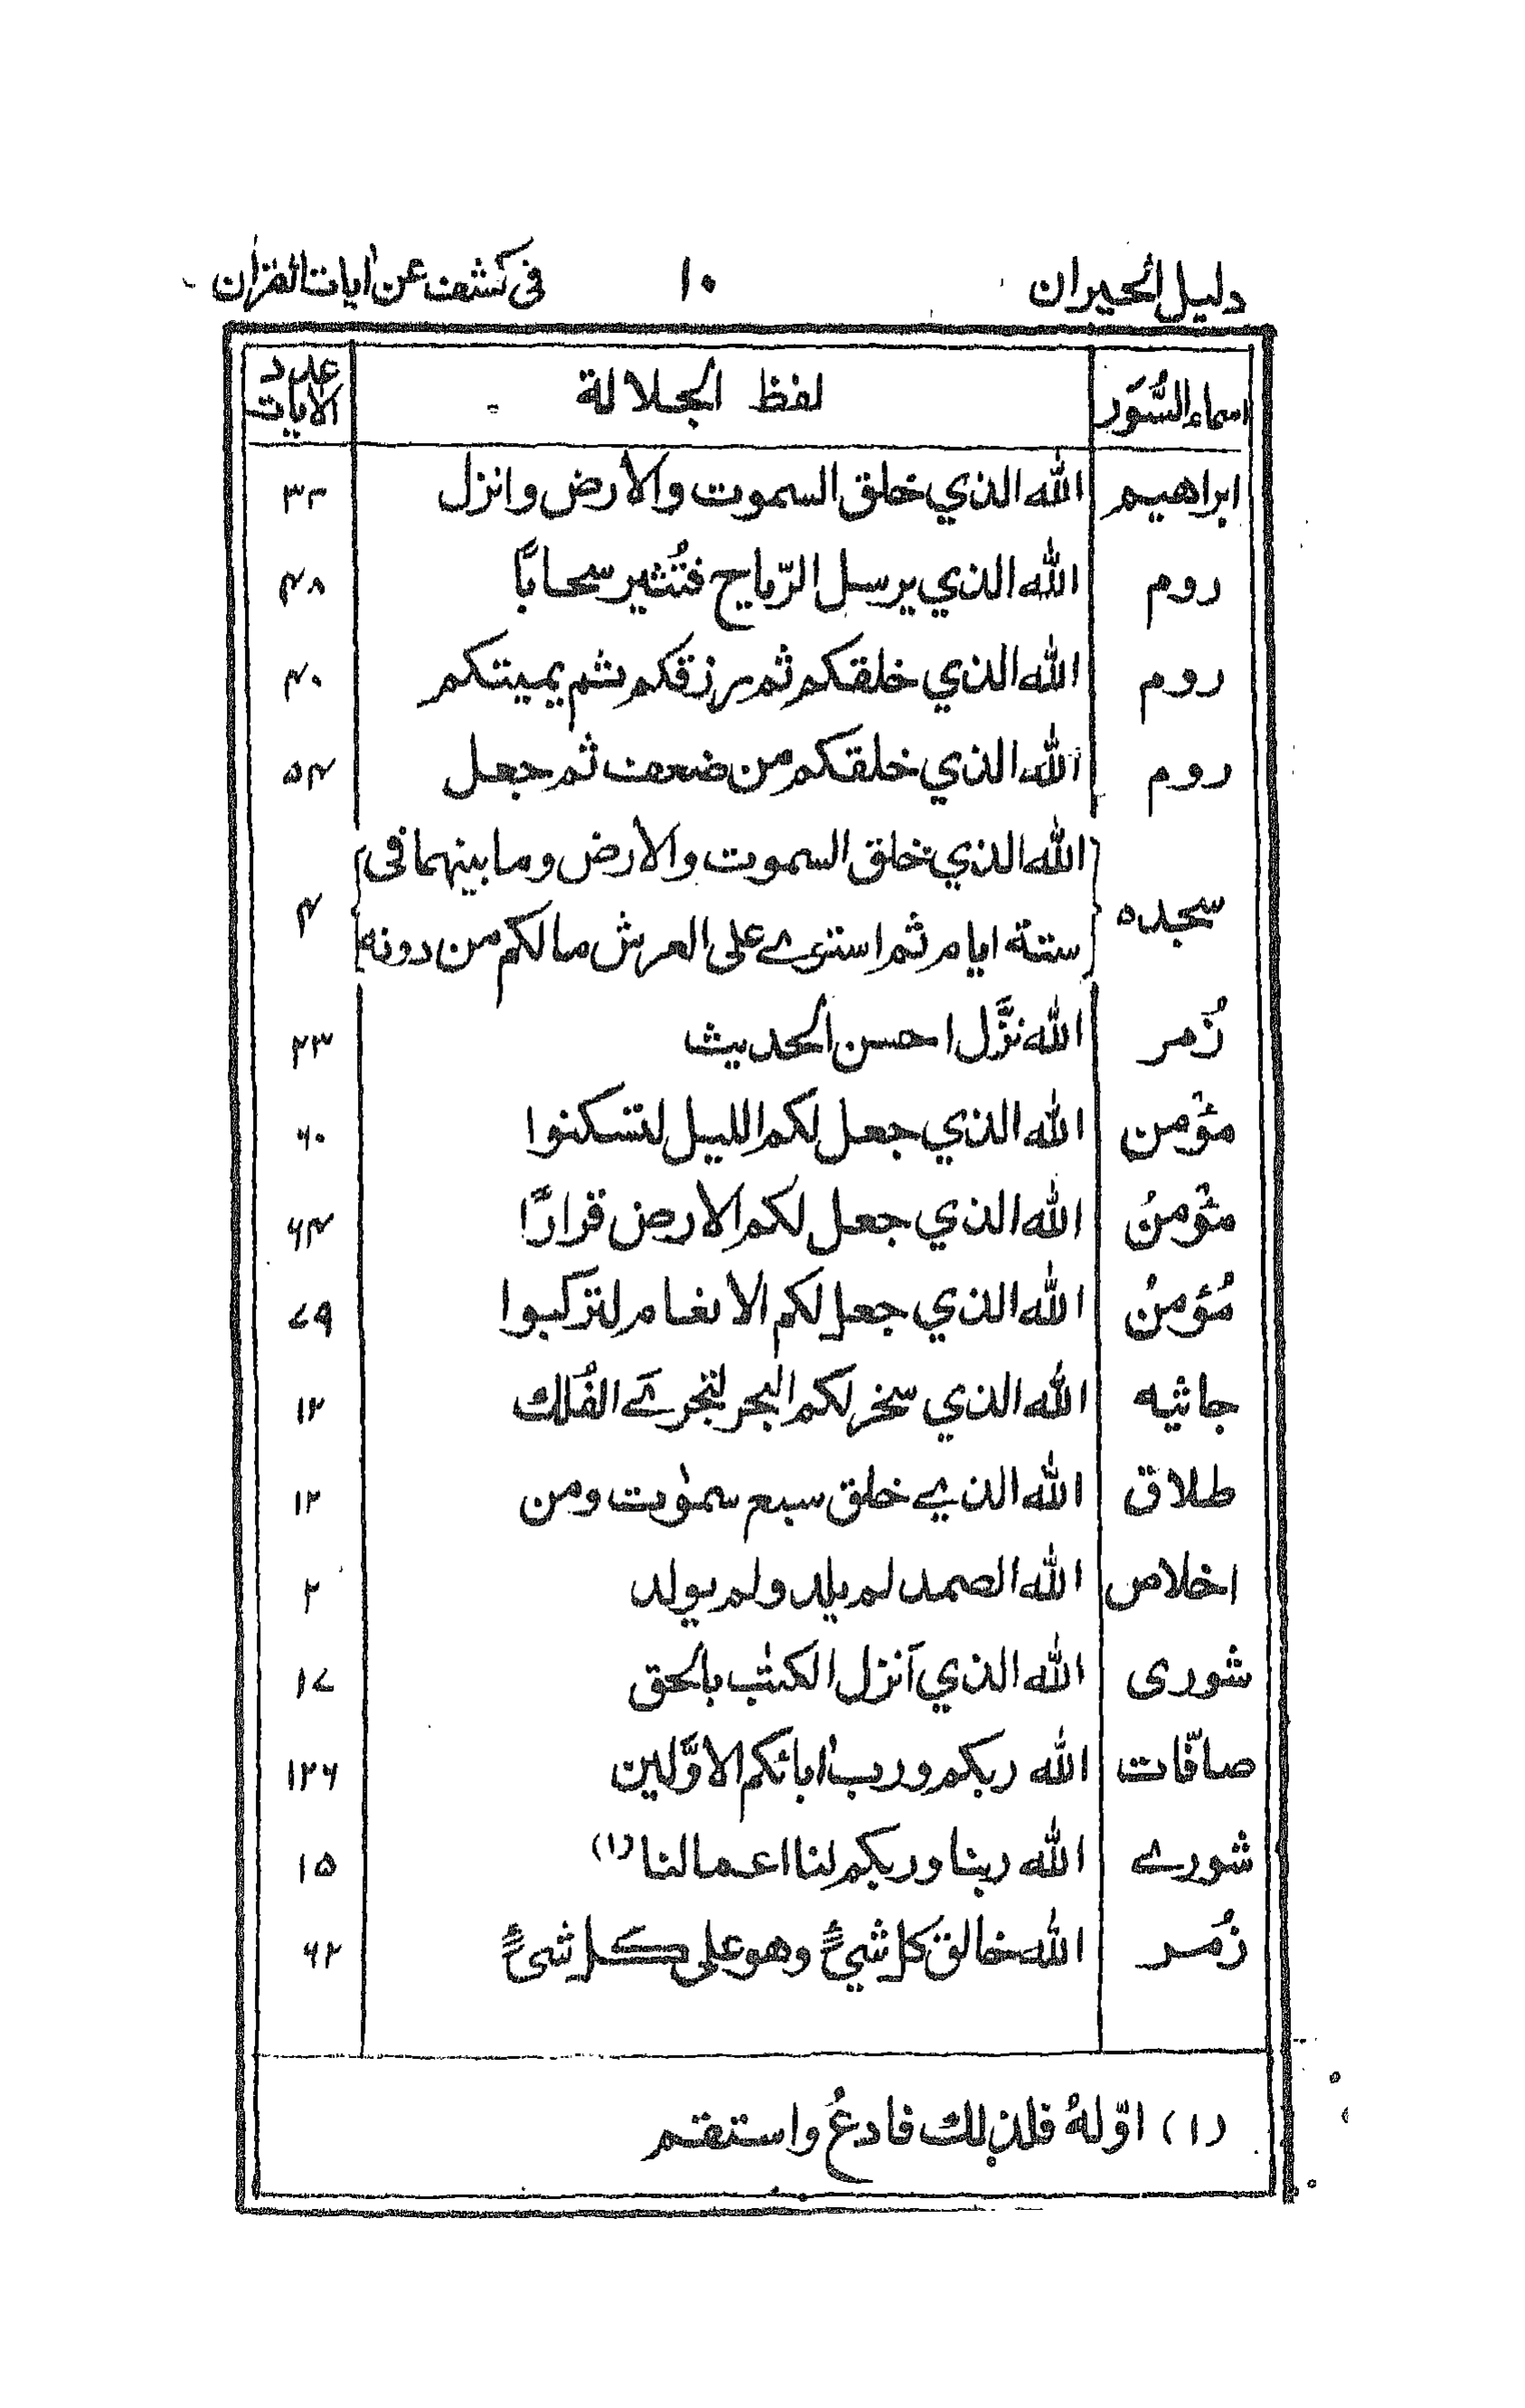 دليل الحيران ١٠ فى كشف عن اٰيات القران
اسماء السُّوَر لفظ الجلالة عدد الاٰيات
ابراهيم الله الذي خلق السموت والأرض وانزل ٣٢
روم الله الذي يرسل الرّياح فتُثير سحابًا ۴۸
روم الله الذي خلقكم ثم رزقكم ثم يميتكم ۴۰
روم الله الذي خلقكم من ضعف ثم جعل ۵۴
سجده الله الذي خلق السموت والأرض وما بينهما فى ۴
ستة ايام ثم استوے على العرش مالكم من دونه
زُمر الله نزَّل احسن الحديث ۲۳
مؤمن الله الذي جعل لكم الليل لتسكنوا ۶۰
مؤمنُ الله الذي جعل لكم الارض قرارًا ۶۴
مُؤمنُ الله الذي جعل لكم الانعام لتركبوا ۷۹
جاثيه الله الذي سخر لكم البحر لتجرےَ الفُلك ۱۲
طلاق الله الذيے خلق سبع سمٰوٰت ومن ۱۲
اخلاص الله الصمد لم يلد ولم يولد ۲
شورى الله الذي اَنزل الكتٰب بالحق ۱۷
صافّات الله ربكم ورب اٰبائكم الاوَّلين ۱۲۶
شورے الله ربنا وربكم لنا اعمالنا (١) ۱۵
زُمر الله خالق كل شيءٍ وهو على كل شىءٍ ۶۲
(١) اوّلهُ فلذٰلك فادعُ واستقم